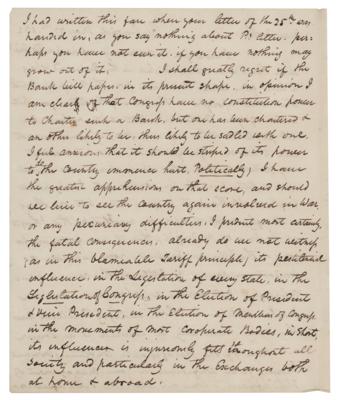 I had written this far when your letter of the 25th was
handed in, as you say nothing about Ps letter. per-
haps you have not seen it. if you have nothing may
grow out of it, I shall greatly regret if the
Bank bill passes. in its present shape. in opinion I
am clear of that Congress have no constitution power
to Charter such a Bank, but one has been chartered &
an other likely to be. thus likely to be sadled with one
I feel anxious that it should be striped of its power
to the Country immence hurt. Politically, I have
the greatest apprehensions on that score, and should
we live to see the country again involved in War
or any pecuniary difficulties. I predict most certainly
the fatal consequences. already do we not witness
(as in this blameable Tariff principle) its pestilential
influence. in the Legislation of every State, in the
Legislation of Congress, in the Election of President
& Vice President, in the Election of Members of Congress
in the movements of most Corporate Bodies, in short,
its influence is injuriously felt throughout all
Society and particularly in the Exchanges both
at home & abroad.